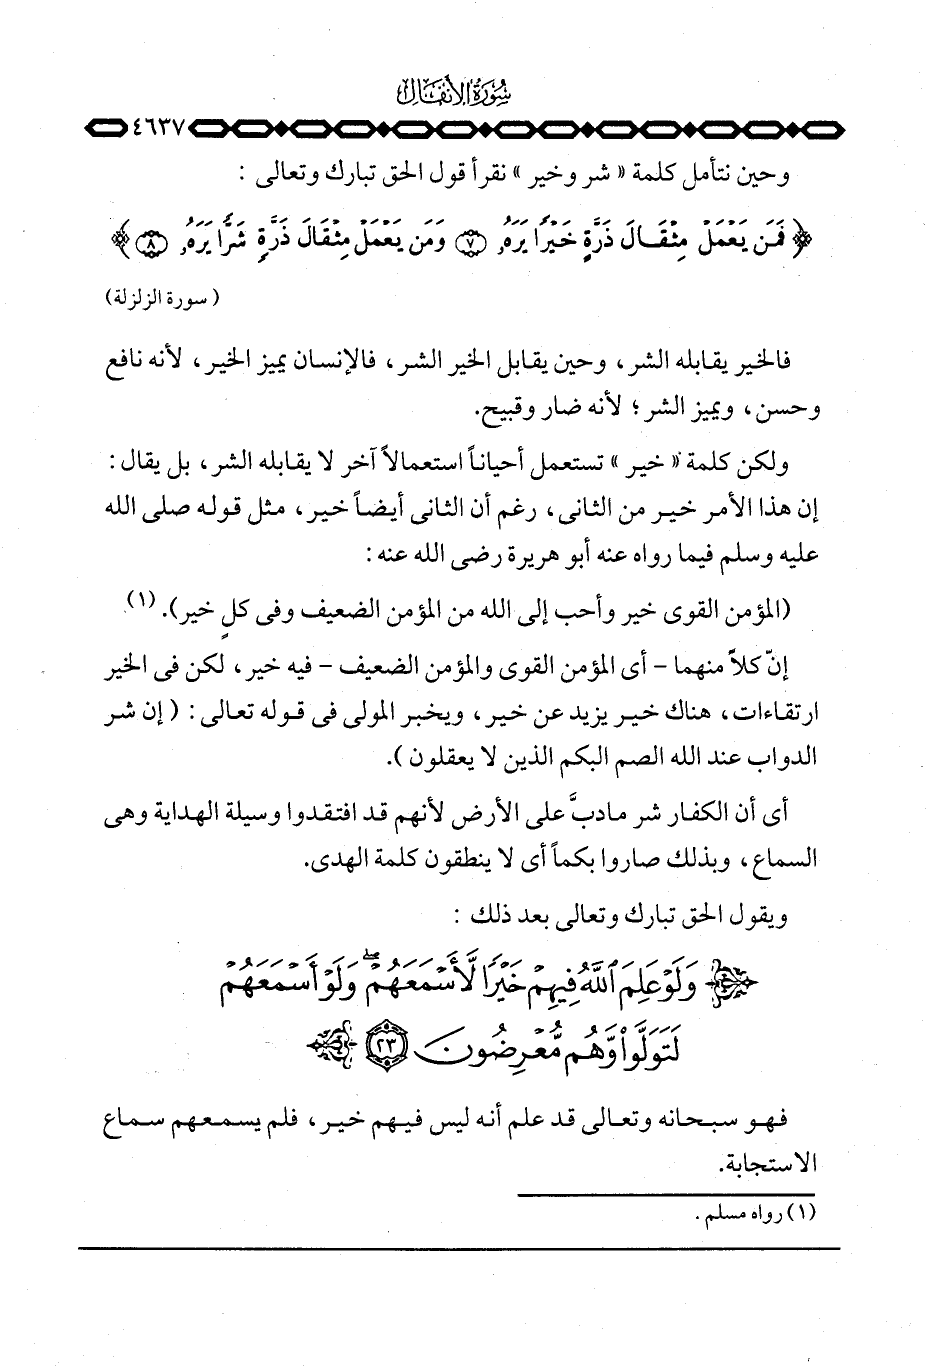 سورة الأنفال
٤٦٣٧
وحين نتأمل كلمة « شر وخير » نقرأ قول الحق تبارك وتعالى :
﴿ فَمَن يَعْمَلْ مِثْقَالَ ذَرَّةٍ خَيْرًا يَرَهُۥ ﴿٧﴾ وَمَن يَعْمَلْ مِثْقَالَ ذَرَّةٍ شَرًّا يَرَهُۥ ﴿٨﴾ ﴾
( سورة الزلزلة)
فالخير يقابله الشر ، وحين يقابل الخير الشر ، فالإنسان يميز الخير ، لأنه نافع
وحسن ، ويميز الشر ؛ لأنه ضار وقبيح.
ولكن كلمة « خير » تستعمل أحياناً استعمالاً آخر لا يقابله الشر ، بل يقال :
إن هذا الأمر خير من الثانى ، رغم أن الثانى أيضاً خير ، مثل قوله صلى الله
عليه وسلم فيما رواه عنه أبو هريرة رضى الله عنه :
(المؤمن القوى خير وأحب إلى الله من المؤمن الضعيف وفى كلٍ خير). (١)
إنّ كلاً منهما - أى المؤمن القوى والمؤمن الضعيف - فيه خير ، لكن فى الخير
ارتقاءات ، هناك خير يزيد عن خير ، ويخبر المولى فى قوله تعالى : ( إن شر
الدواب عند الله الصم البكم الذين لا يعقلون ).
أى أن الكفار شر مادبَّ على الأرض لأنهم قد افتقدوا وسيلة الهداية وهى
السماع ، وبذلك صاروا بكماً أى لا ينطقون كلمة الهدى.
ويقول الحق تبارك وتعالى بعد ذلك :
﴿ وَلَوْ عَلِمَ ٱللَّهُ فِيهِمْ خَيْرًا لَّأَسْمَعَهُمْ ۖ وَلَوْ أَسْمَعَهُمْ
لَتَوَلَّوا۟ وَّهُم مُّعْرِضُونَ ﴿٢٣﴾ ﴾
فهو سبحانه وتعالى قد علم أنه ليس فيهم خير ، فلم يسمعهم سماع
الاستجابة.
(١) رواه مسلم .